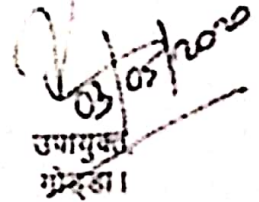 03/05/2020
उपायुक्त
गोड्डा।